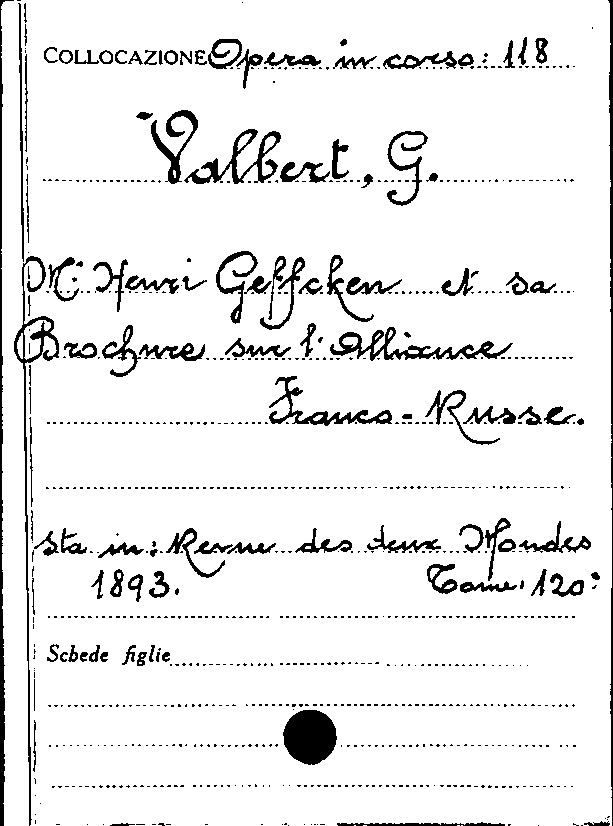 COLLOCAZIONE Opera in corso: 118
Valbert, G.
M. Henri Geffcken et sa
Brochure sur l'Alliance
Franco-Russe.
sta in: Revue des deux Mondes
1893. Tome 120º
Schede figlie